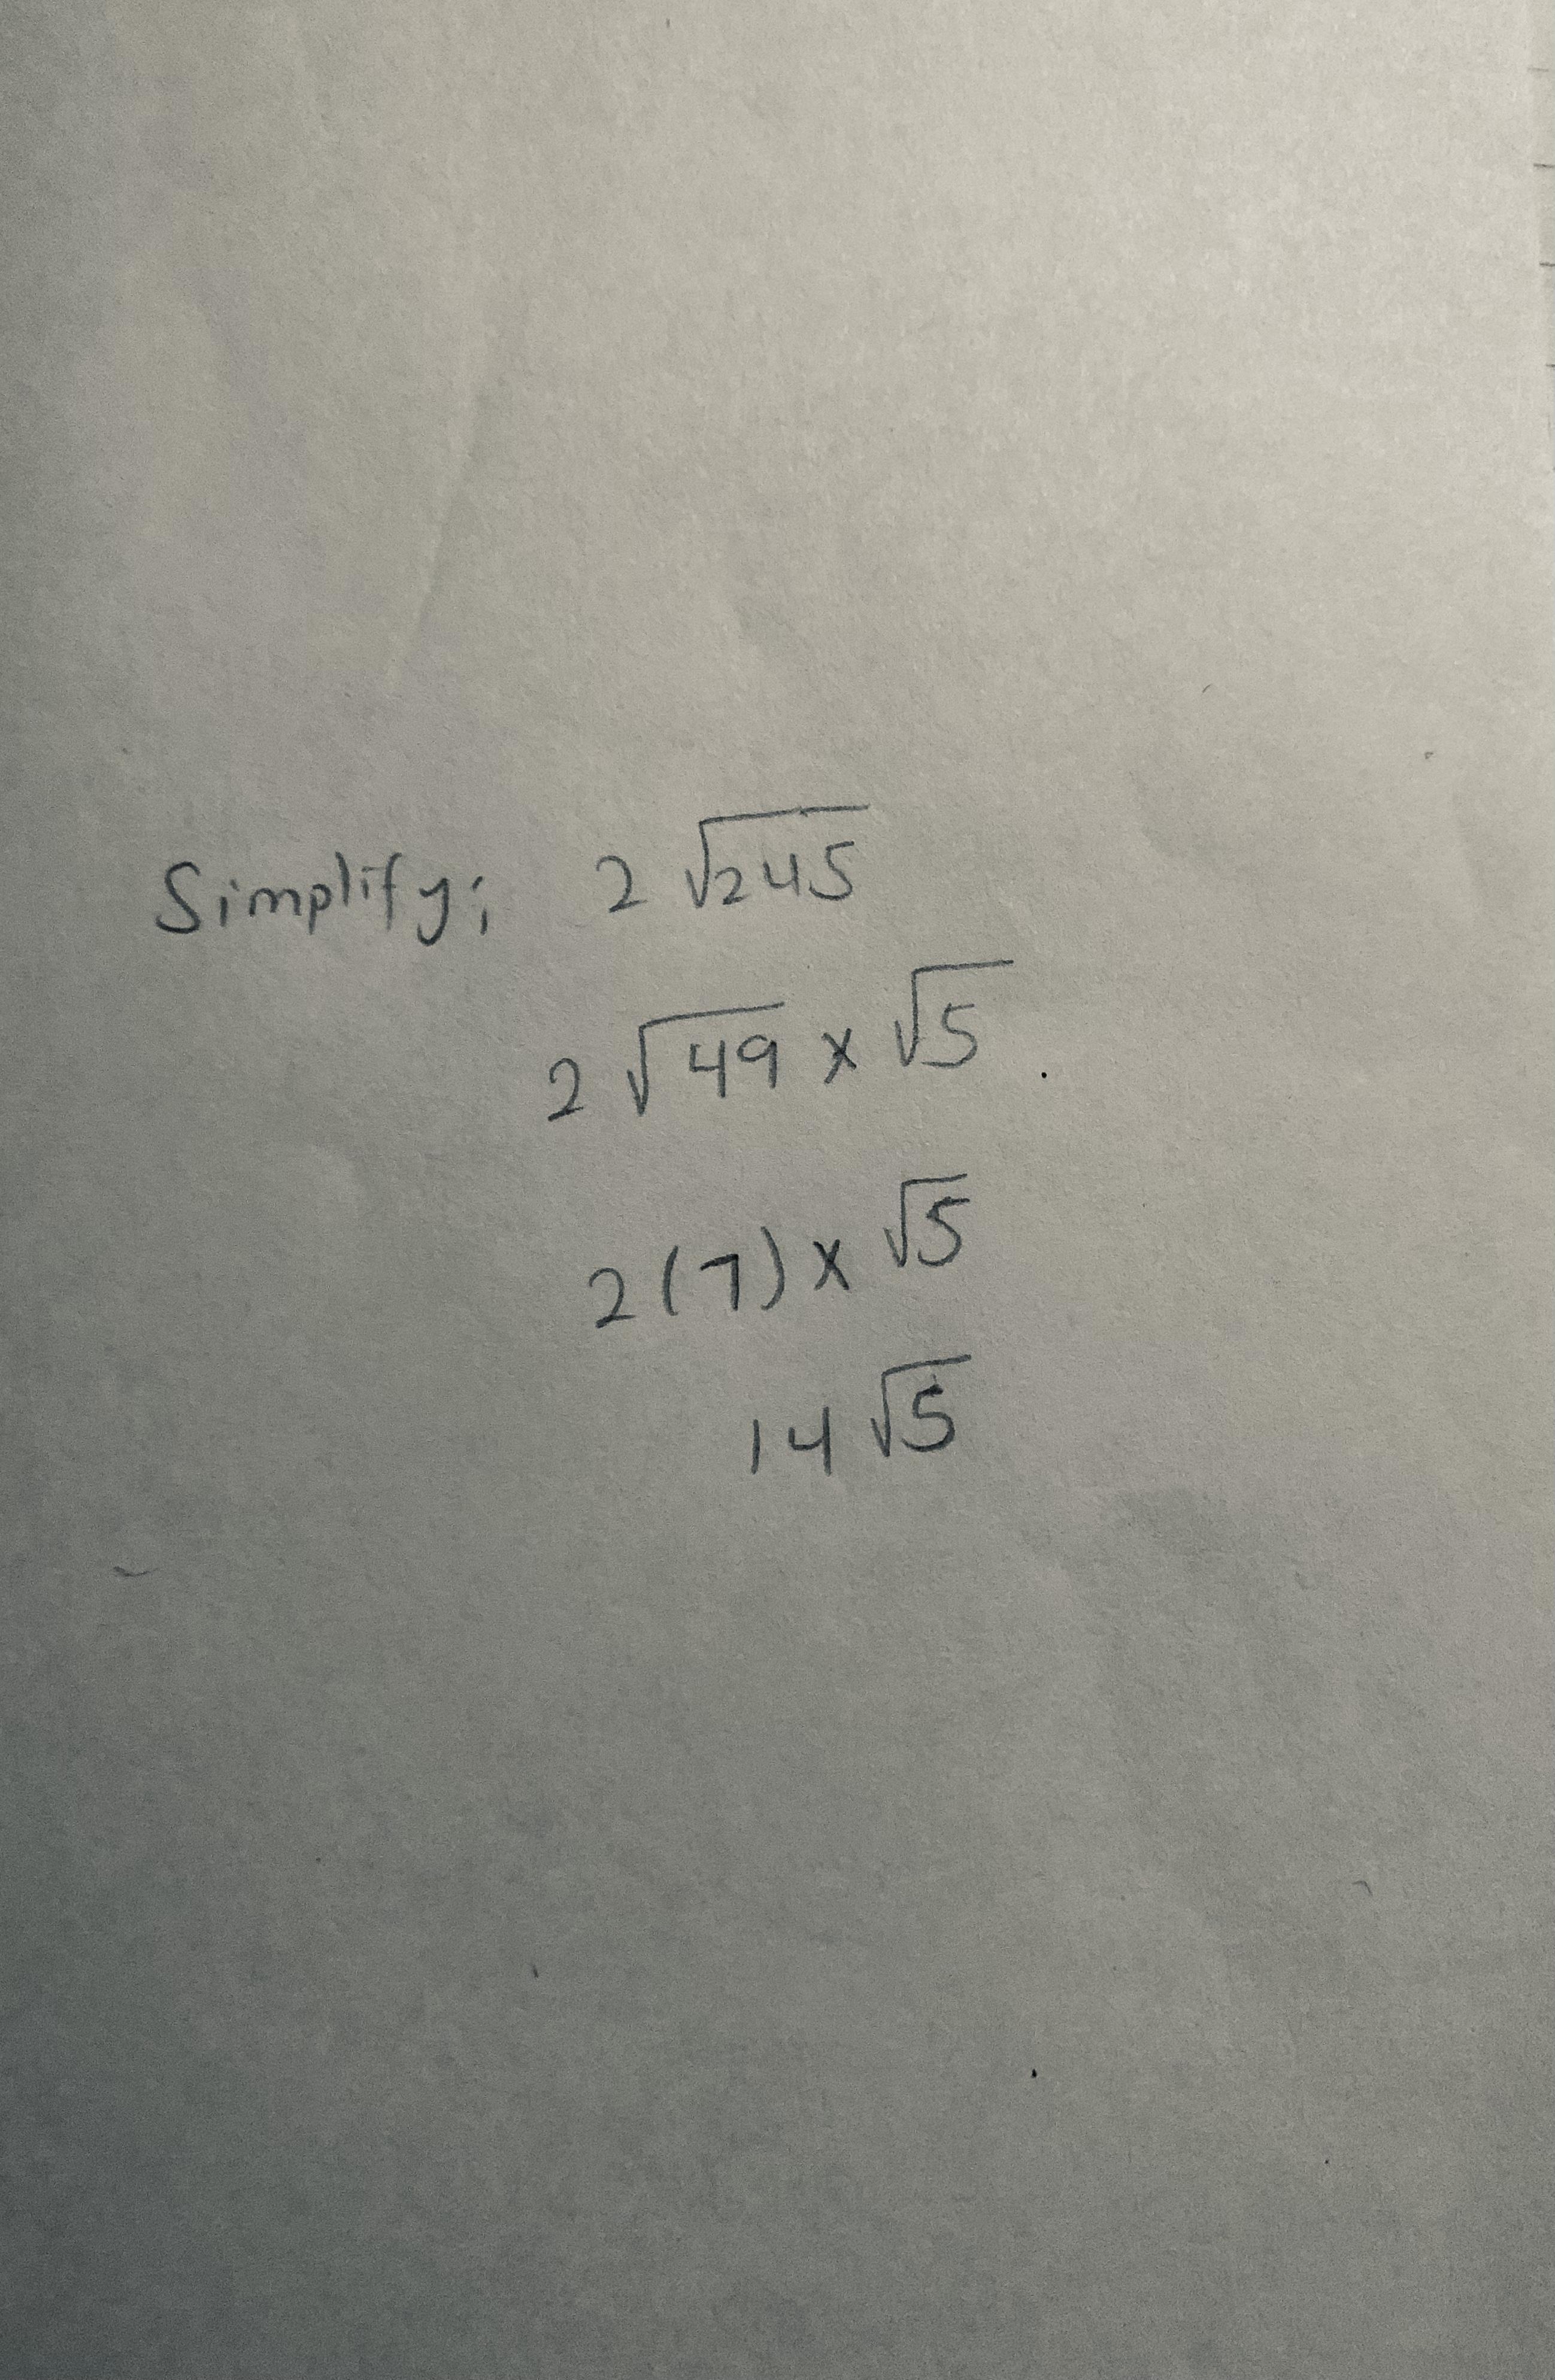 Simplify; 2 √245
2 √49 x √5
2(7) x √5
14 √5